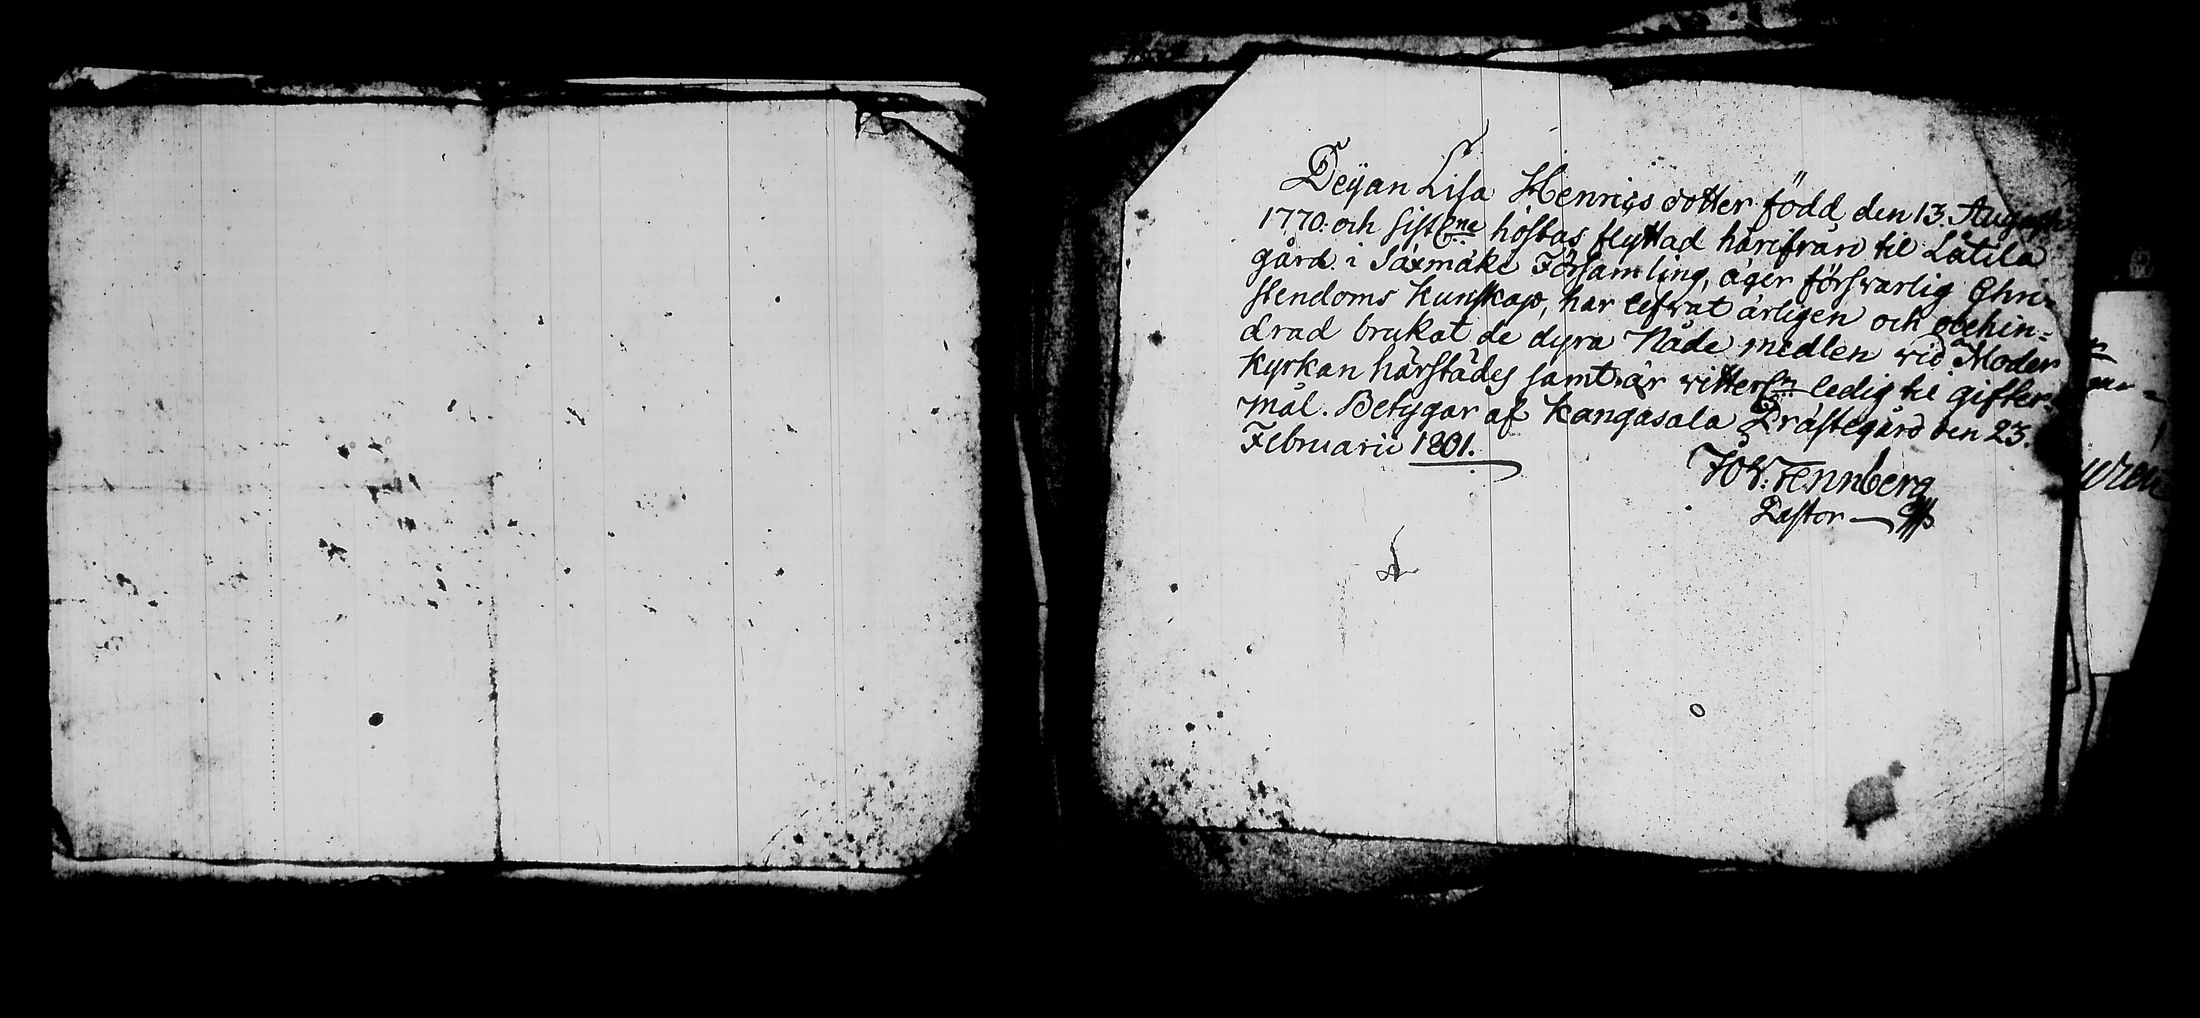 Deÿan Lisa Henrics dotter född den 13. Augusti
1770. och sistl:ne höstas flyttad härifrån til Låtila
gård i Säxmäki Församling, äger försvarlig Chri-
stendoms kunskap, har lefvat ärligen och obehin-
drad brukat de dyra Nåde medlen vid Moder
Kyrkan härstädes samt är vitterl:n ledig til gifter-
mål. Betygar af Kangasala Prästegård den 23.
Februarii 1801.
Joh: Tennberg
Pastor